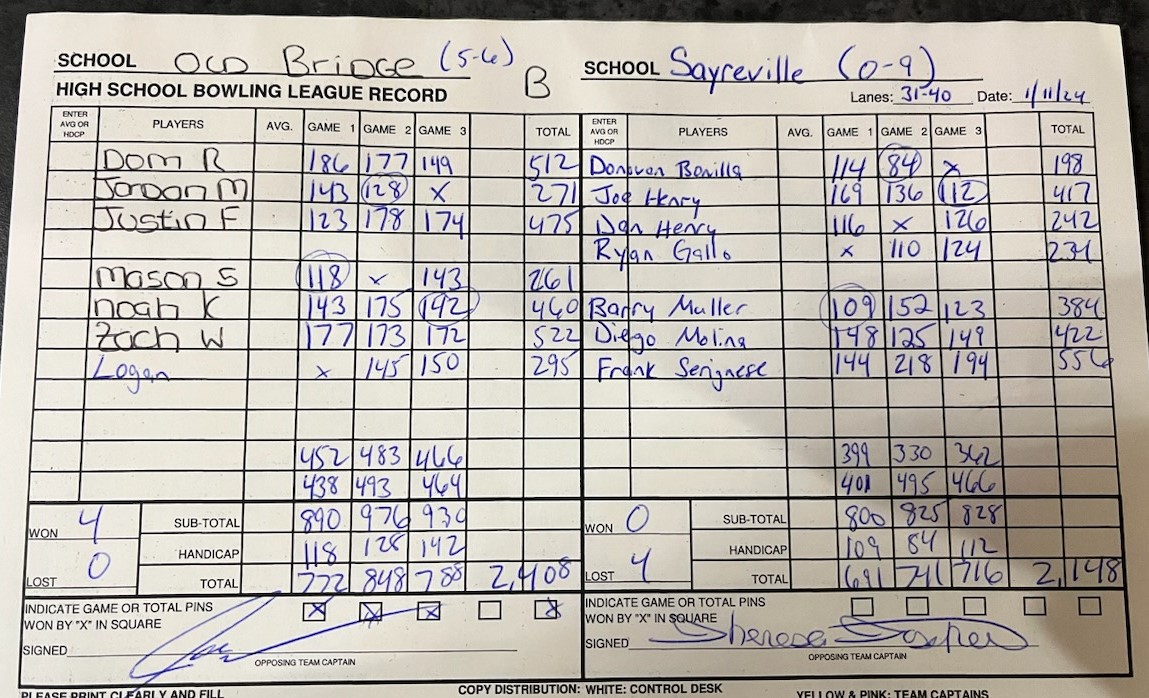 SCHOOL OLD BRIDGE (5-6) B SCHOOL Sayreville (0-9)
HIGH SCHOOL BOWLING LEAGUE RECORD Lanes: 31-40 Date: 1/11/24
ENTER AVG OR HDCP PLAYERS AVG. GAME 1 GAME 2 GAME 3 TOTAL ENTER AVG OR HDCP PLAYERS AVG. GAME 1 GAME 2 GAME 3 TOTAL
Dom R 186 177 149 512 Donovan Bonilla 114 84 x 198
Jordan M 143 128 x 271 Joe Henry 169 136 112 417
Justin F 123 178 174 475 Dan Henry 116 x 126 242
Ryan Gallo x 110 124 234
Mason S 118 x 143 261
Noah K 143 175 142 460 Barry Muller 109 152 123 384
Zach W 177 173 172 522 Diego Molina 148 125 149 422
Logan x 145 150 295 Frank Serignese 144 218 194 556
452 483 466 399 330 362
438 493 464 401 495 466
WON 4 SUB-TOTAL 890 976 930 WON 0 SUB-TOTAL 800 825 828
HANDICAP 118 128 142 HANDICAP 109 84 112
LOST 0 TOTAL 772 848 788 2,408 LOST 4 TOTAL 691 741 716 2,148
INDICATE GAME OR TOTAL PINS x x x x INDICATE GAME OR TOTAL PINS
WON BY "X" IN SQUARE WON BY "X" IN SQUARE
SIGNED SIGNED Therese
OPPOSING TEAM CAPTAIN OPPOSING TEAM CAPTAIN
PLEASE PRINT CLEARLY AND FILL COPY DISTRIBUTION: WHITE: CONTROL DESK YELLOW & PINK: TEAM CAPTAINS